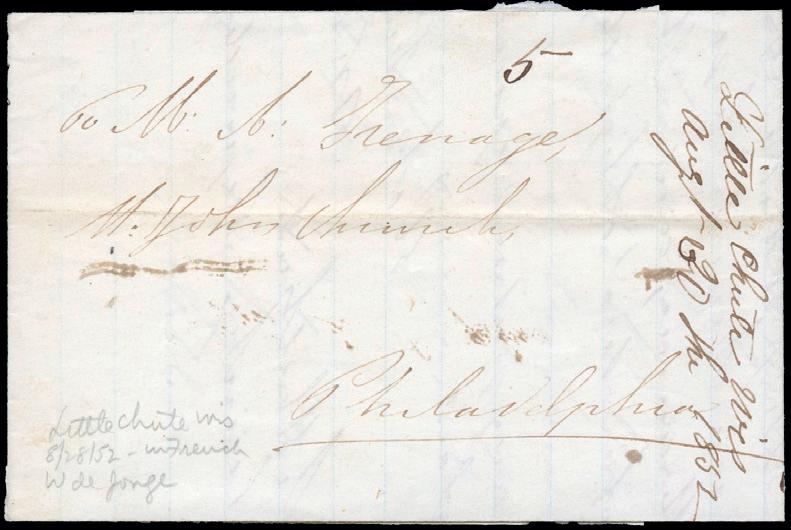 5
to Mr. A: Frenage,
St. John Church,
Philadelphia
Little Chute Wis
Augt 30 the 1852
Little chute wis
8/28/52 - in French
W de Jonge